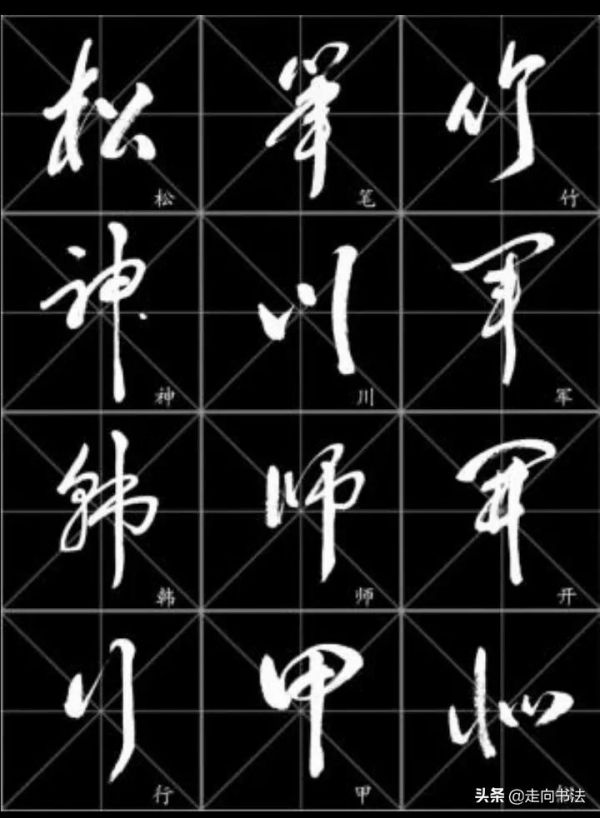 松 筆 竹
松 笔 竹
神 川 军
神 川 军
韩 师 開
韩 师 开
行 甲
行 甲
头条 @走向书法